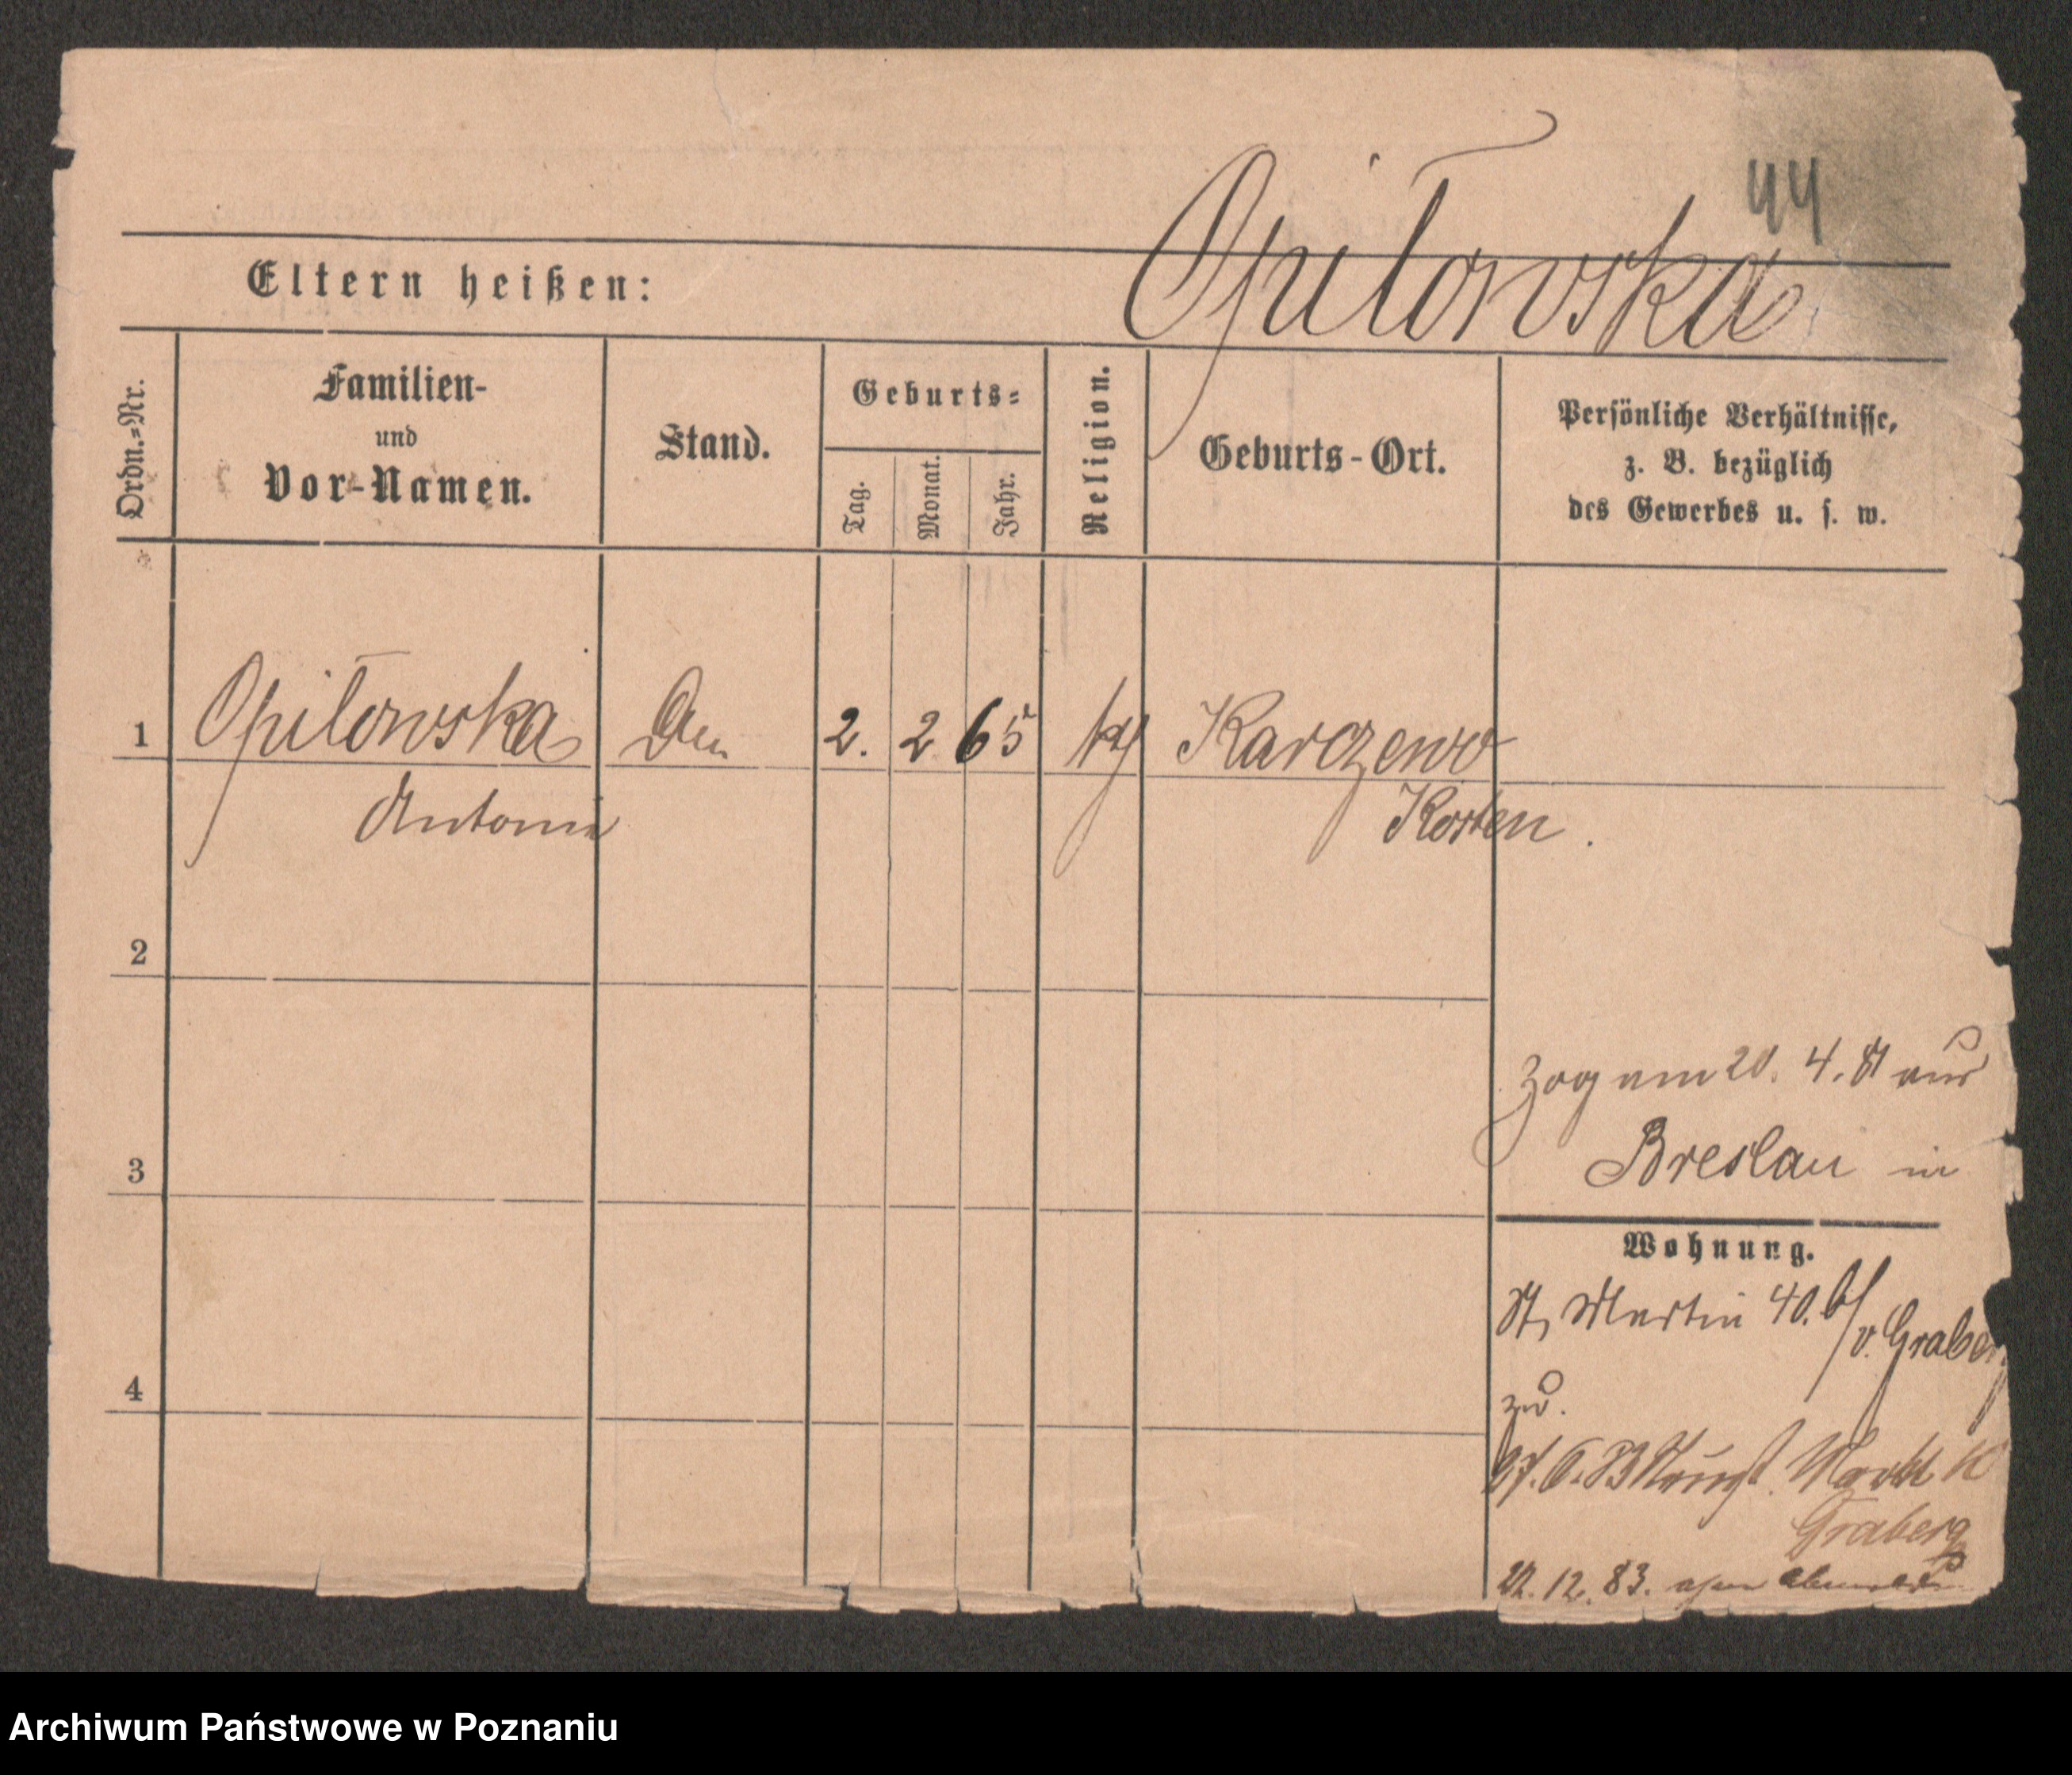 44
Opiłowska
Eltern heißen:
Ordn.=Nr.
Familien-
und
Vor-Namen.
Stand.
Geburts=
Tag.
Monat.
Jahr.
Religion.
Geburts-Ort.
Persönliche Verhältnisse,
z. B. bezüglich
des Gewerbes u. s. w.
1 Opiłowska 2. 2 65 Karczewo
Antonie Kosten.
2
3
4
zog am 20. 4. 81 aus
Breslau in
Wohnung.
St. Martin 40. b/
v. Graberg
zu.
Markt
Graberg
22. 12. 83.
Archiwum Państwowe w Poznaniu